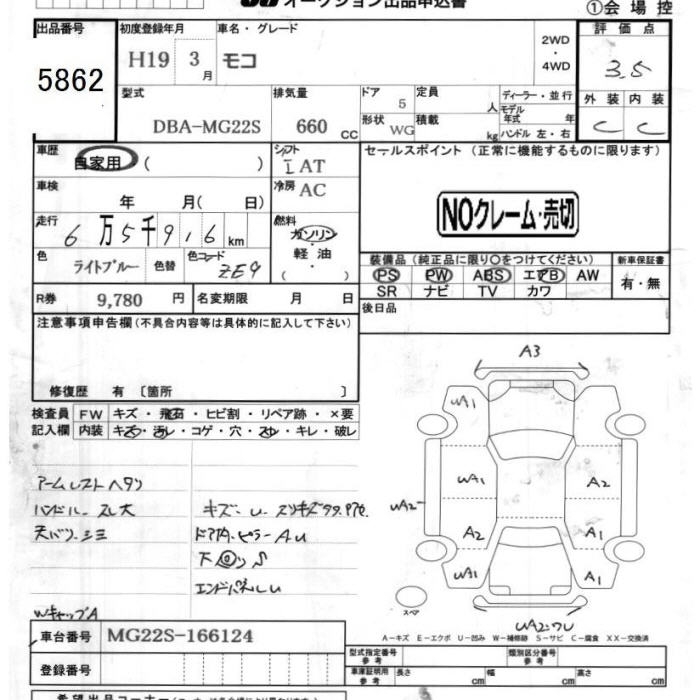 オークション出品申込書
①会場控
出品番号 初度登録年月 車名・グレード 2WD・4WD 評価点
5862 H19 3月 モコ 3.5
型式 排気量 ドア 定員 人 ディーラー・並行 外装 内装
DBA-MG22S 660cc 5 モデル年式 年 C C
形状 WG 積載 kg ハンドル 左・右
車歴 自家用 ( ) シフト IAT セールスポイント (正常に機能するものに限ります)
車検 年 月( 日) 冷房 AC
NOクレーム・売切
走行 6万5千916km 燃料 ガソリン・軽油 ( )
色 ライトブルー 色替 色コード ZE9
装備品(純正品に限り○をつけてください) 新車保証書
PS PW ABS エアB AW 有・無
SR ナビ TV カワ
R券 9,780円 名変期限 月 日 後日品
注意事項申告欄(不具合内容等は具体的に記入して下さい)
修復歴 有 〔箇所 〕
検査員記入欄 FW キズ・飛石・ヒビ割・リペア跡・×要
内装 キズ・汚レ・コゲ・穴・スレ・キレ・破レ
アームレストヘタリ
ハンドル スレ大
天バリ シミ
ドア内・ピラーAU
WキャップA
A3
UA1
UA1
A2
UA2
A2
A1
UA1
A1
スペア
A-キズ E-エクボ U-凹み W-補修跡 S-サビ C-腐食 XX-交換済
車台番号 MG22S-166124
登録番号
型式指定番号 参考 類別区分番号 参考
車庫証明用 参考 長さ cm 幅 cm 高さ cm